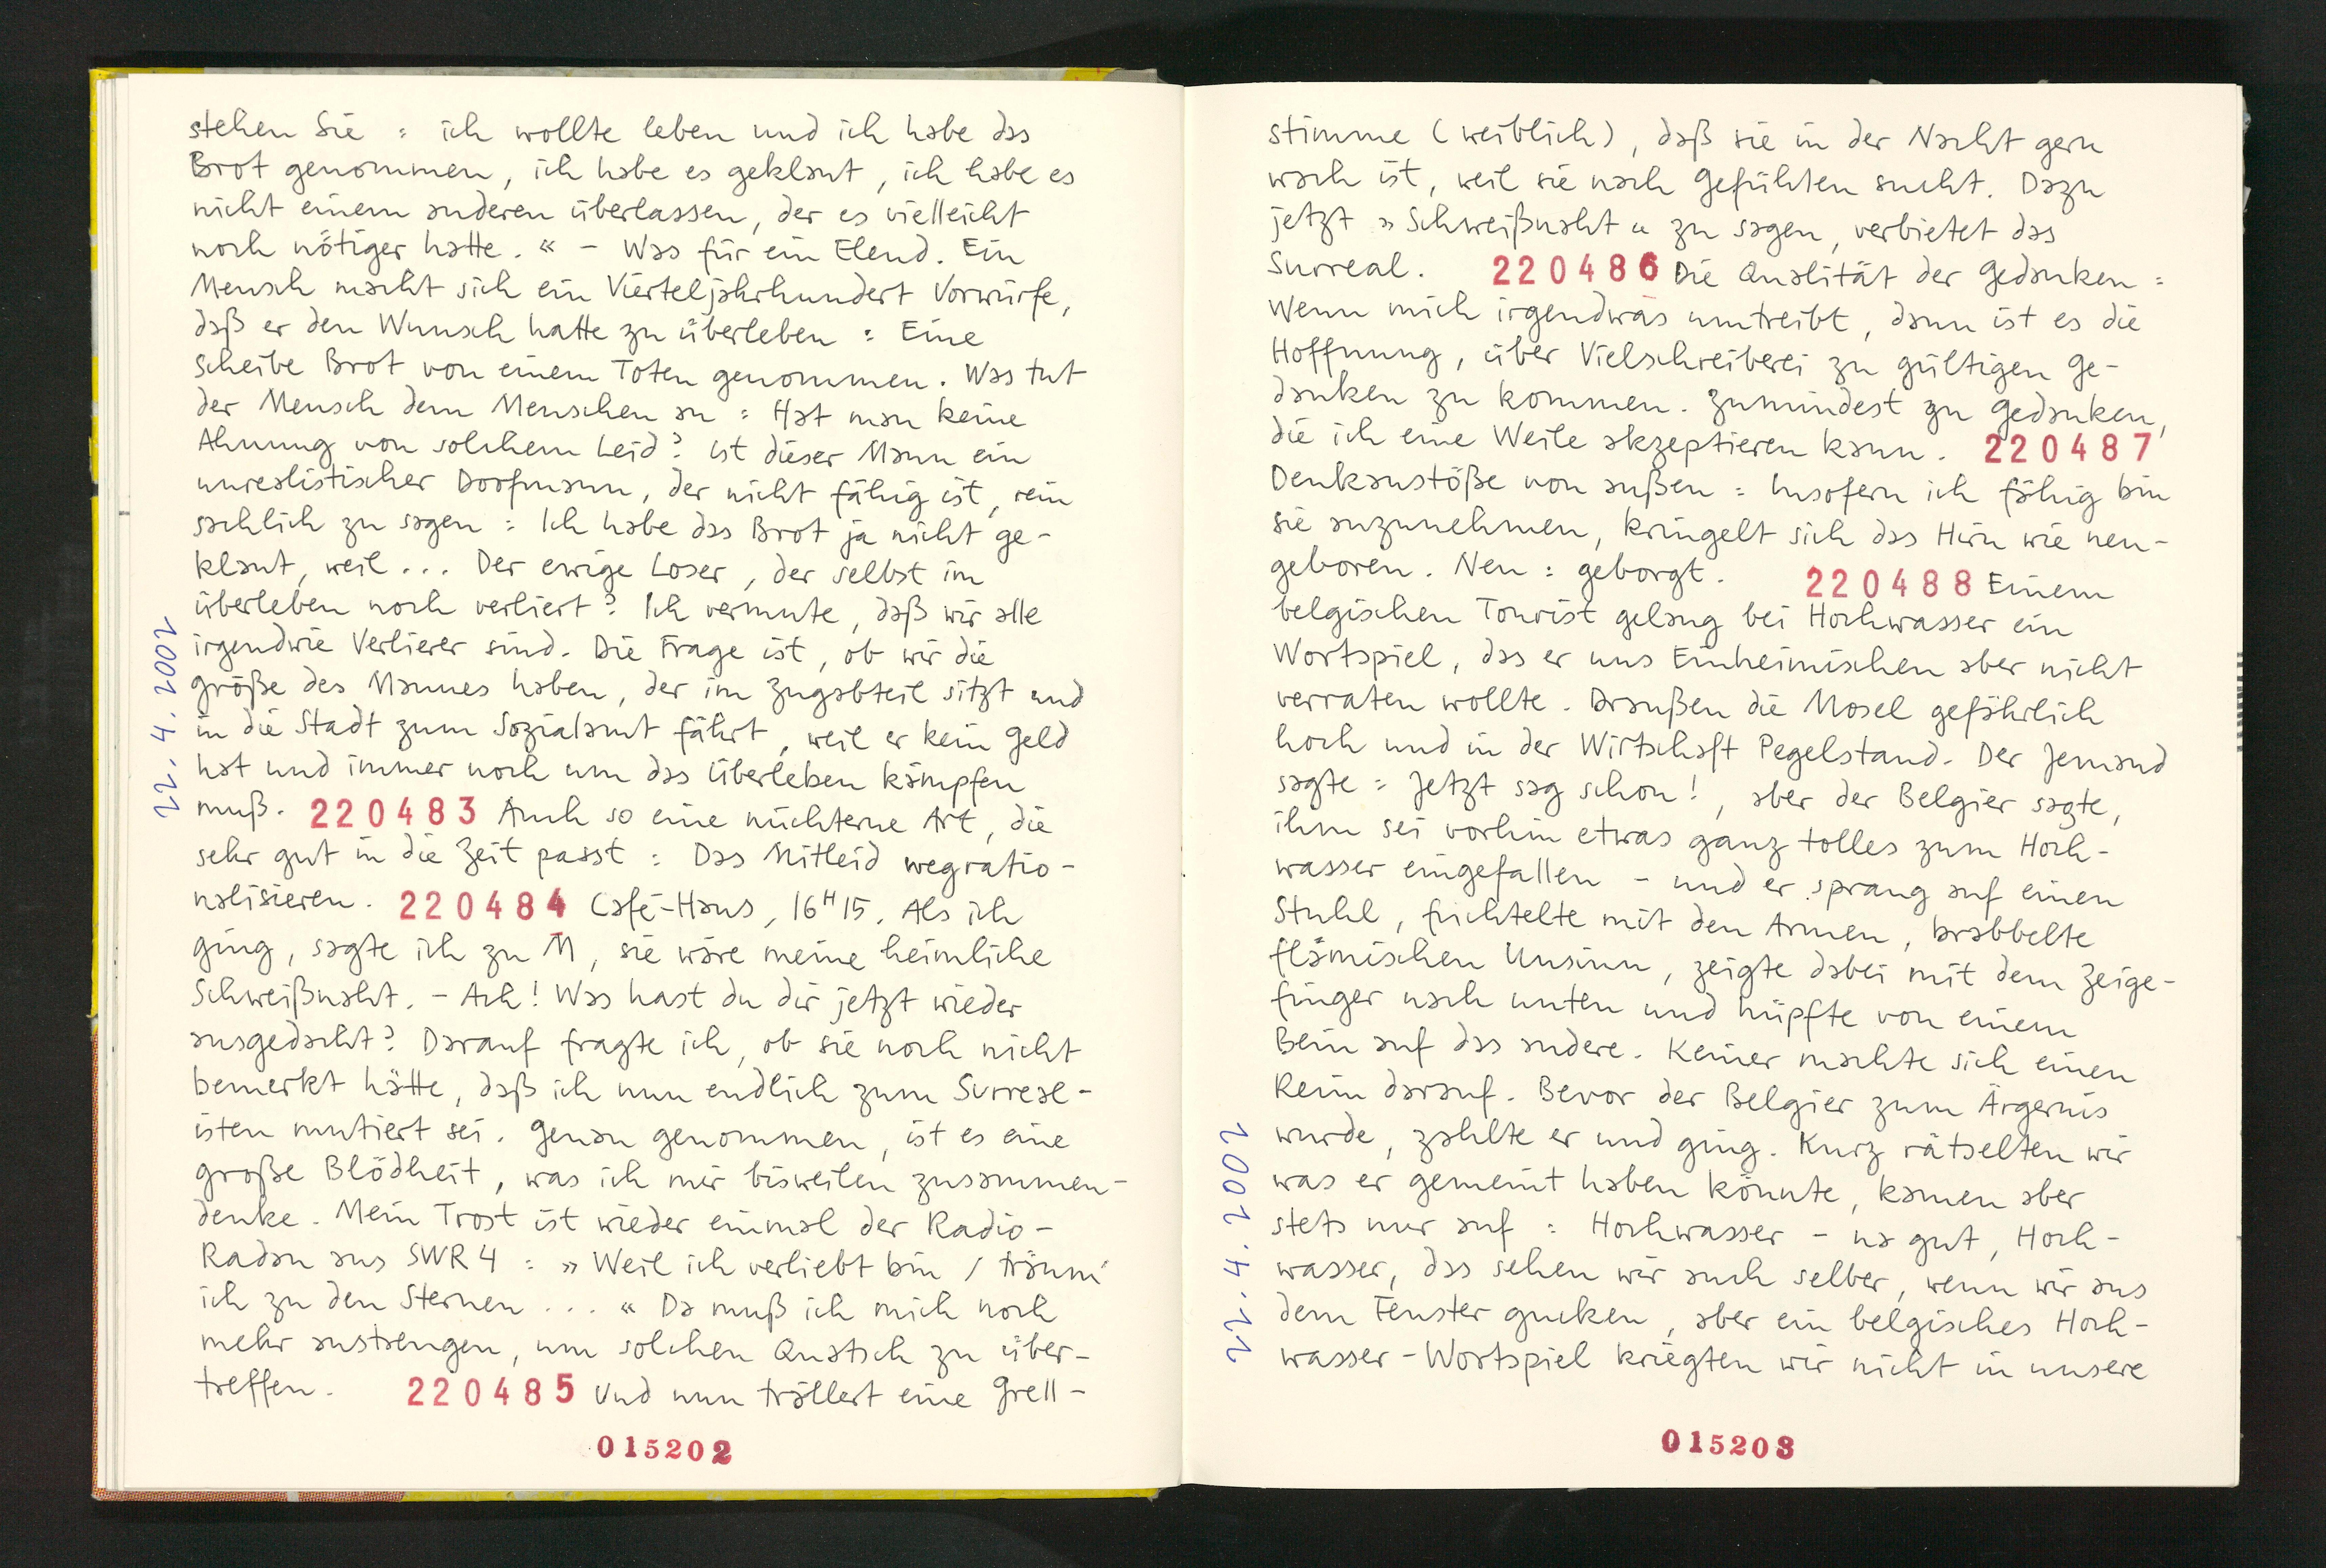 stehen Sie : ich wollte leben und ich habe das
Brot genommen, ich habe es geklaut, ich habe es
nicht einem anderen überlassen, der es vielleicht
noch nötiger hatte. « – Was für ein Elend. Ein
Mensch macht sich ein Vierteljahrhundert Vorwürfe,
daß er den Wunsch hatte zu überleben : Eine
Scheibe Brot von einem Toten genommen. Was tut
der Mensch dem Menschen an : Hat man keine
Ahnung von solchem Leid? Ist dieser Mann ein
unrealistischer Doofmann, der nicht fähig ist, rein
sachlich zu sagen : Ich habe das Brot ja nicht ge-
klaut, weil ... Der ewige Loser, der selbst im
überleben noch verliert? Ich vermute, daß wir alle
irgendwie Verlierer sind. Die Frage ist, ob wir die
Größe des Mannes haben, der im Zugabteil sitzt und
in die Stadt zum Sozialamt fährt, weil er kein Geld
hat und immer noch um das Überleben kämpfen
muß. 220483 Auch so eine nüchterne Art, die
sehr gut in die Zeit passt : Das Mitleid wegratio-
nalisieren. 220484 Café-Haus, 16H15. Als ich
ging, sagte ich zu M, sie wäre meine heimliche
Schweißnaht. – Ach! Was hast du dir jetzt wieder
ausgedacht? Darauf fragte ich, ob sie noch nicht
bemerkt hätte, daß ich nun endlich zum Surreal-
isten mutiert sei. Genau genommen, ist es eine
große Blödheit, was ich mir bisweilen zusammen-
denke. Mein Trost ist wieder einmal der Radio-
Radau aus SWR 4 : » Weil ich verliebt bin / träum'
ich zu den Sternen ... « Da muß ich mich noch
mehr anstrengen, um solchen Quatsch zu über-
treffen. 220485 Und nun trällert eine Grell-
22. 4. 2002
015202
stimme (weiblich), daß sie in der Nacht gern
wach ist, weil sie nach Gefühlen sucht. Dazu
jetzt » Schweißnaht « zu sagen, verbietet das
Surreal. 220486 Die Qualität der Gedanken :
Wenn mich irgendwas umtreibt, dann ist es die
Hoffnung, über Vielschreiberei zu gültigen Ge-
danken zu kommen. Zumindest zu Gedanken,
die ich eine Weile akzeptieren kann. 220487
Denkanstöße von außen : Insofern ich fähig bin
sie anzunehmen, kringelt sich das Hirn wie neu-
geboren. Neu : geborgt. 220488 Einem
belgischen Tourist gelang bei Hochwasser ein
Wortspiel, das er uns Einheimischen aber nicht
verraten wollte. Draußen die Mosel gefährlich
hoch und in der Wirtschaft Pegelstand. Der Jemand
sagte : Jetzt sag schon!, aber der Belgier sagte,
ihm sei vorhin etwas ganz tolles zum Hoch-
wasser eingefallen – und er sprang auf einen
Stuhl, fuchtelte mit den Armen, brabbelte
flämischen Unsinn, zeigte dabei mit dem Zeige-
finger nach unten und hüpfte von einem
Bein auf das andere. Keiner machte sich einen
Reim darauf. Bevor der Belgier zum Ärgernis
wurde, zahlte er und ging. Kurz rätselten wir
was er gemeint haben könnte, kamen aber
stets nur auf : Hochwasser – na gut, Hoch-
wasser, das sehen wir auch selber, wenn wir aus
dem Fenster gucken, aber ein belgisches Hoch-
wasser-Wortspiel kriegten wir nicht in unsere
22. 4. 2002
015203